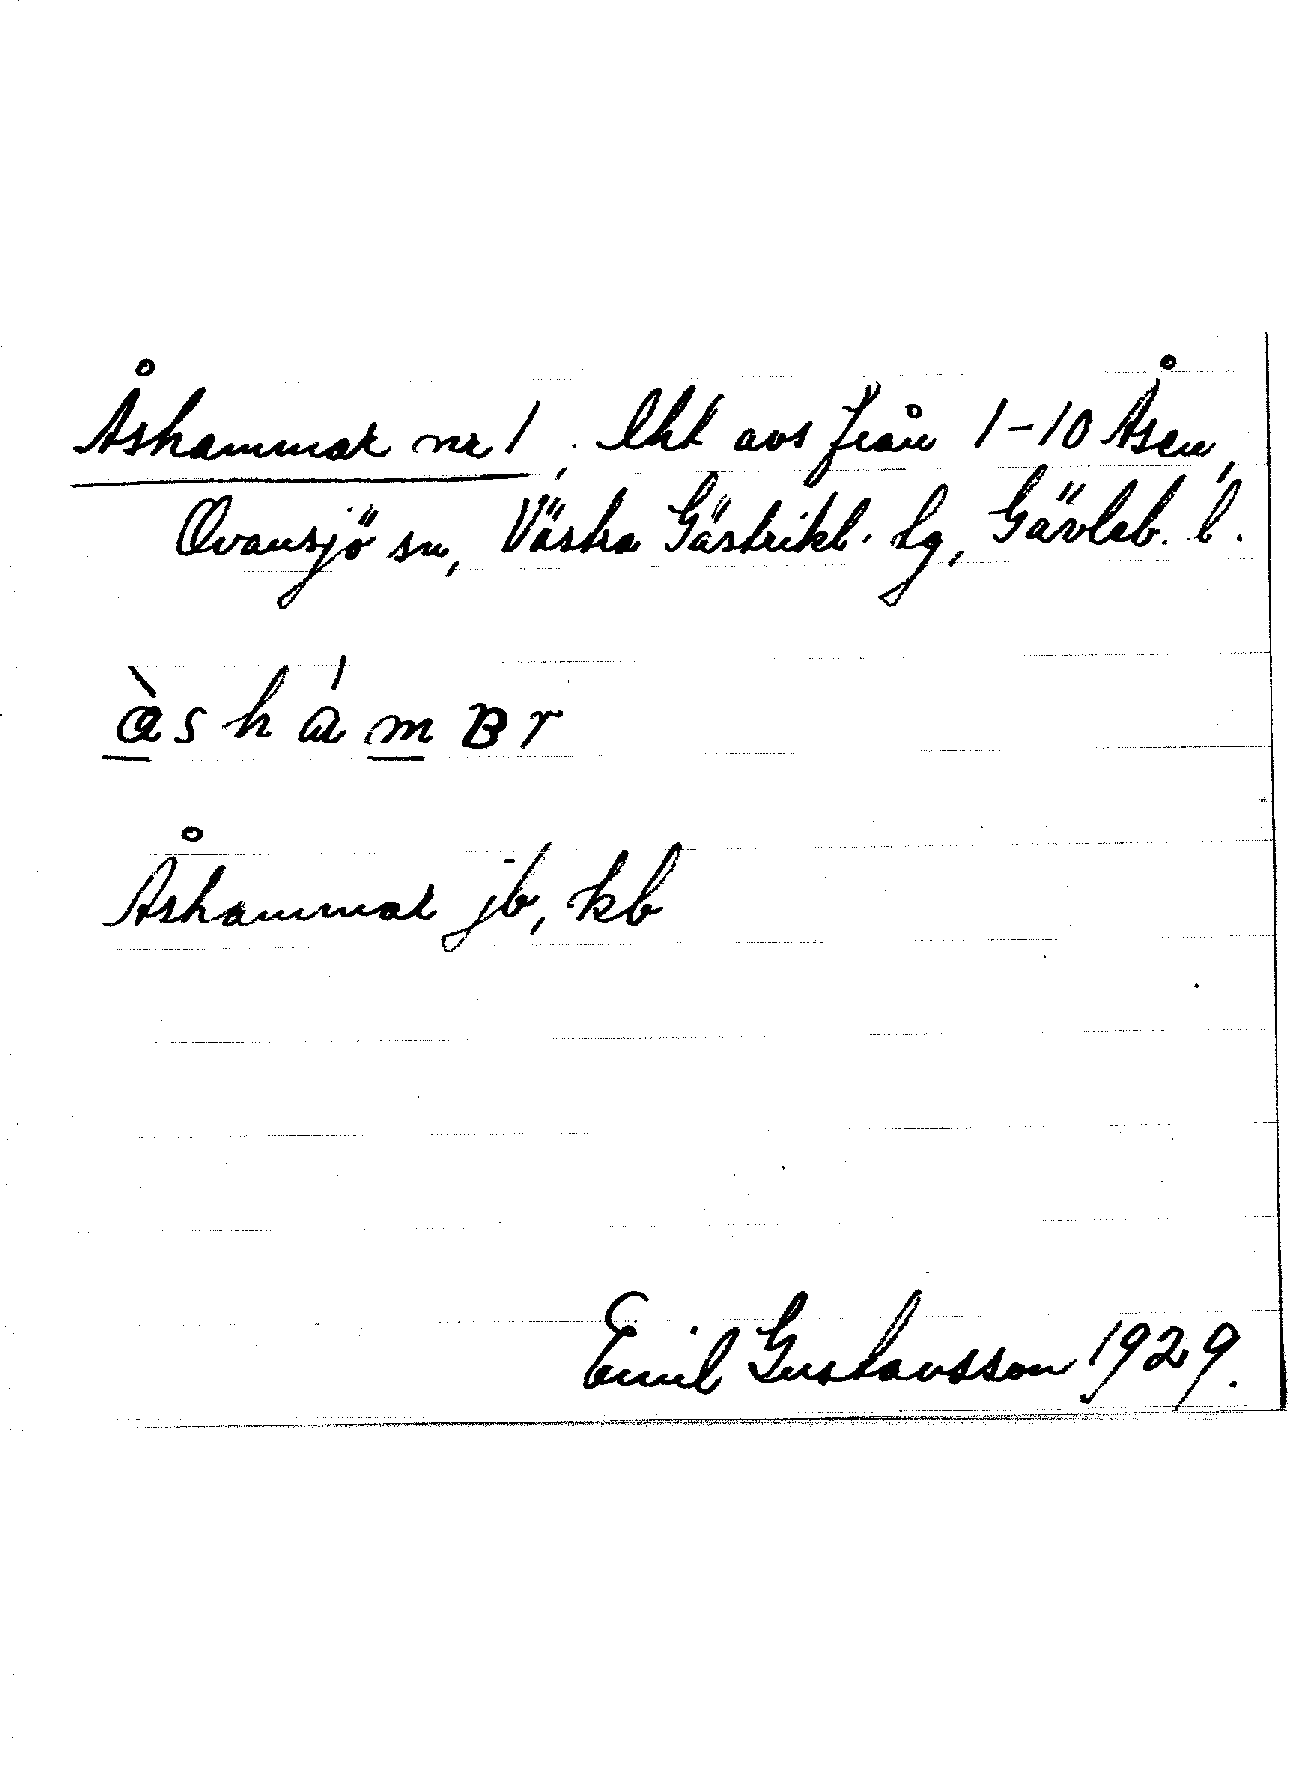 Åshammar nr 1, lht avs från 1-10 Åsen,
Ovansjö sn, Västra Gästrikl. tg, Gävleb. l.
àshámBr
Åshammar jb, kb
Emil Gustavsson 1929.